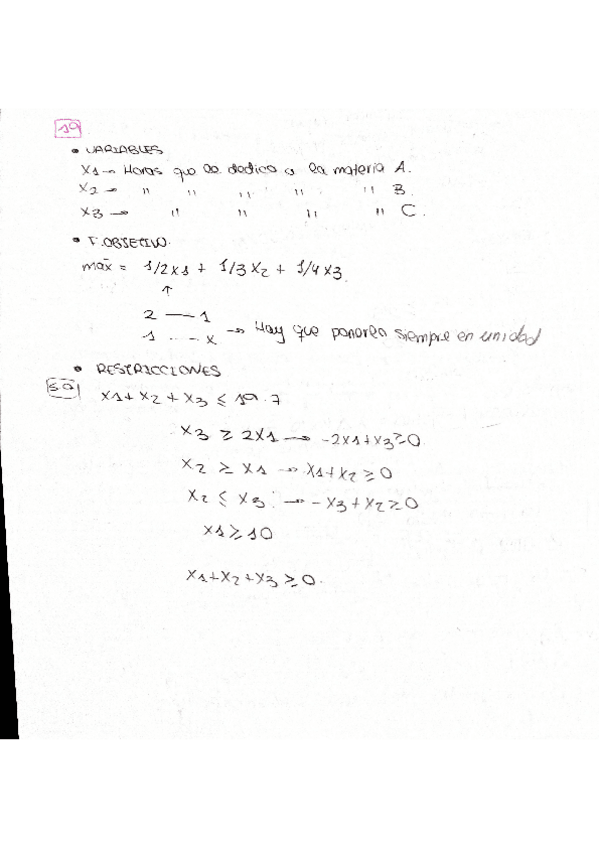 19
• VARIABLES
X1 → Horas que le dedico a la materia A.
X2 → " " " " " B.
X3 → " " " " C.
• F. OBJETIVO.
máx = 1/2x1 + 1/3x2 + 1/4x3
↑
2 — 1
1 -- x → Hay que ponerla siempre en unidad
• RESTRICCIONES
s.a X1 + X2 + X3 ≤ 19.7
X3 ≥ 2X1 → -2x1 + x3 ≥ 0
X2 ≥ X1 → X1 + X2 ≥ 0
X2 ≤ X3 → -X3 + X2 ≥ 0
X1 ≥ 10
X1 + X2 + X3 ≥ 0.